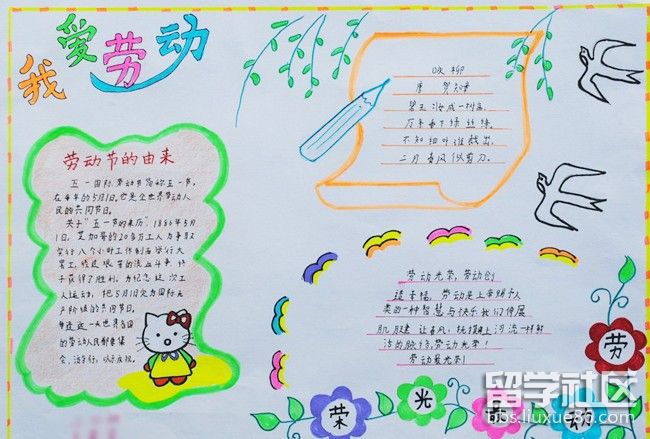 我爱劳动
劳动节的由来
五一国际劳动节简称五一节,
在每年的5月1日,它是全世界劳动人
民的共同节日。
关于“五一节的来历”,1886年5月
1日,芝加哥的20多万工人为争取
实行八个小时工作制而举行大
罢工,经过艰苦的流血斗争,终
于获得了胜利。为纪念这次工
人运动,把5月1日定为国际无
产阶级的共同节日。
每逢这一天世界各国
的劳动人民都要集
会,游行,以示庆祝。
咏柳
唐 贺知章
碧玉妆成一树高,
万条垂下绿丝绦。
不知细叶谁裁出,
二月春风似剪刀。
劳动光荣,劳动创
造幸福,劳动是上帝赐予人
类的一种智慧与快乐我们伸展
肌肤 让春风
河流一样鲜
活的脉络,劳动光荣!
劳动最光荣!
劳
动
最
光
荣
留学社区
bbs.liuxue86.com